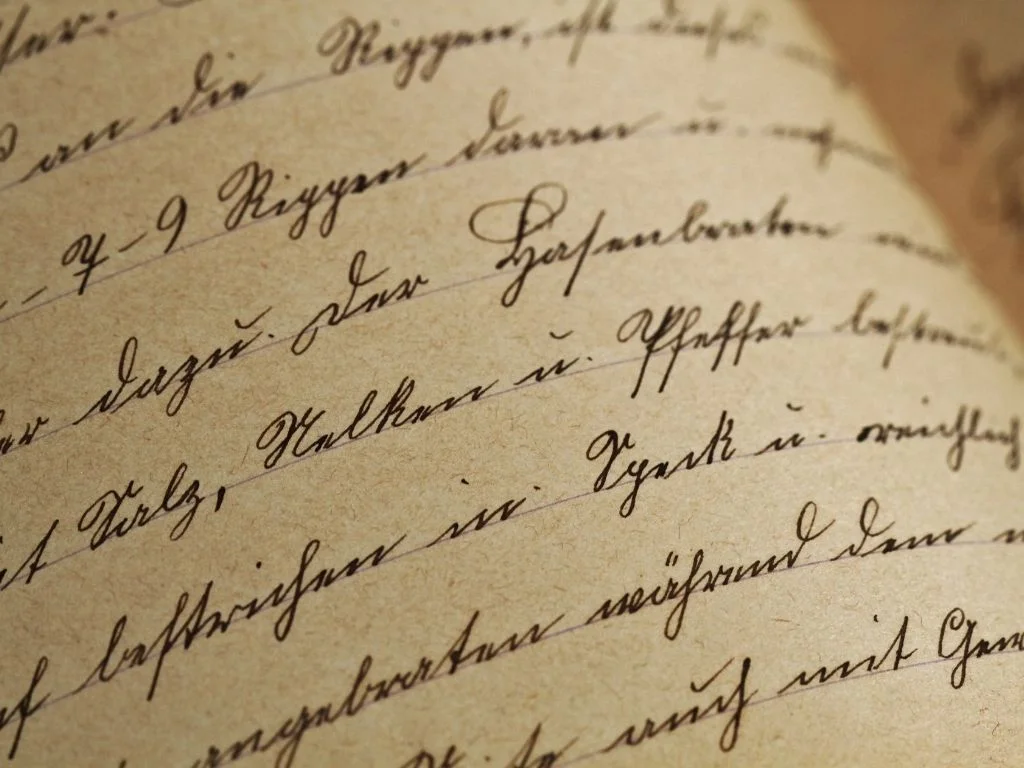 an die Rippen, ist dieses
7-9 Rippen daran u.
dazu. Der Hasenbraten
mit Salz, Nelken u. Pfeffer bestreut
bestrichen in Speck u. reichlich
angebraten während dem
auch mit Gew